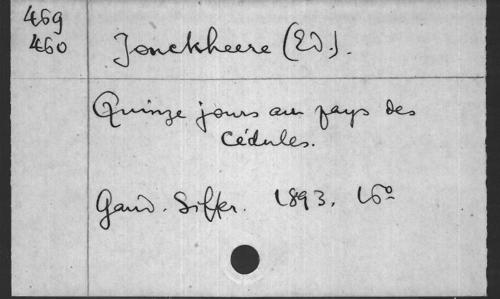 469
460
Jonckheere (Ed.).
Quinze jours au pays des
Cédules.
Gand. Siffer. 1893. 16º